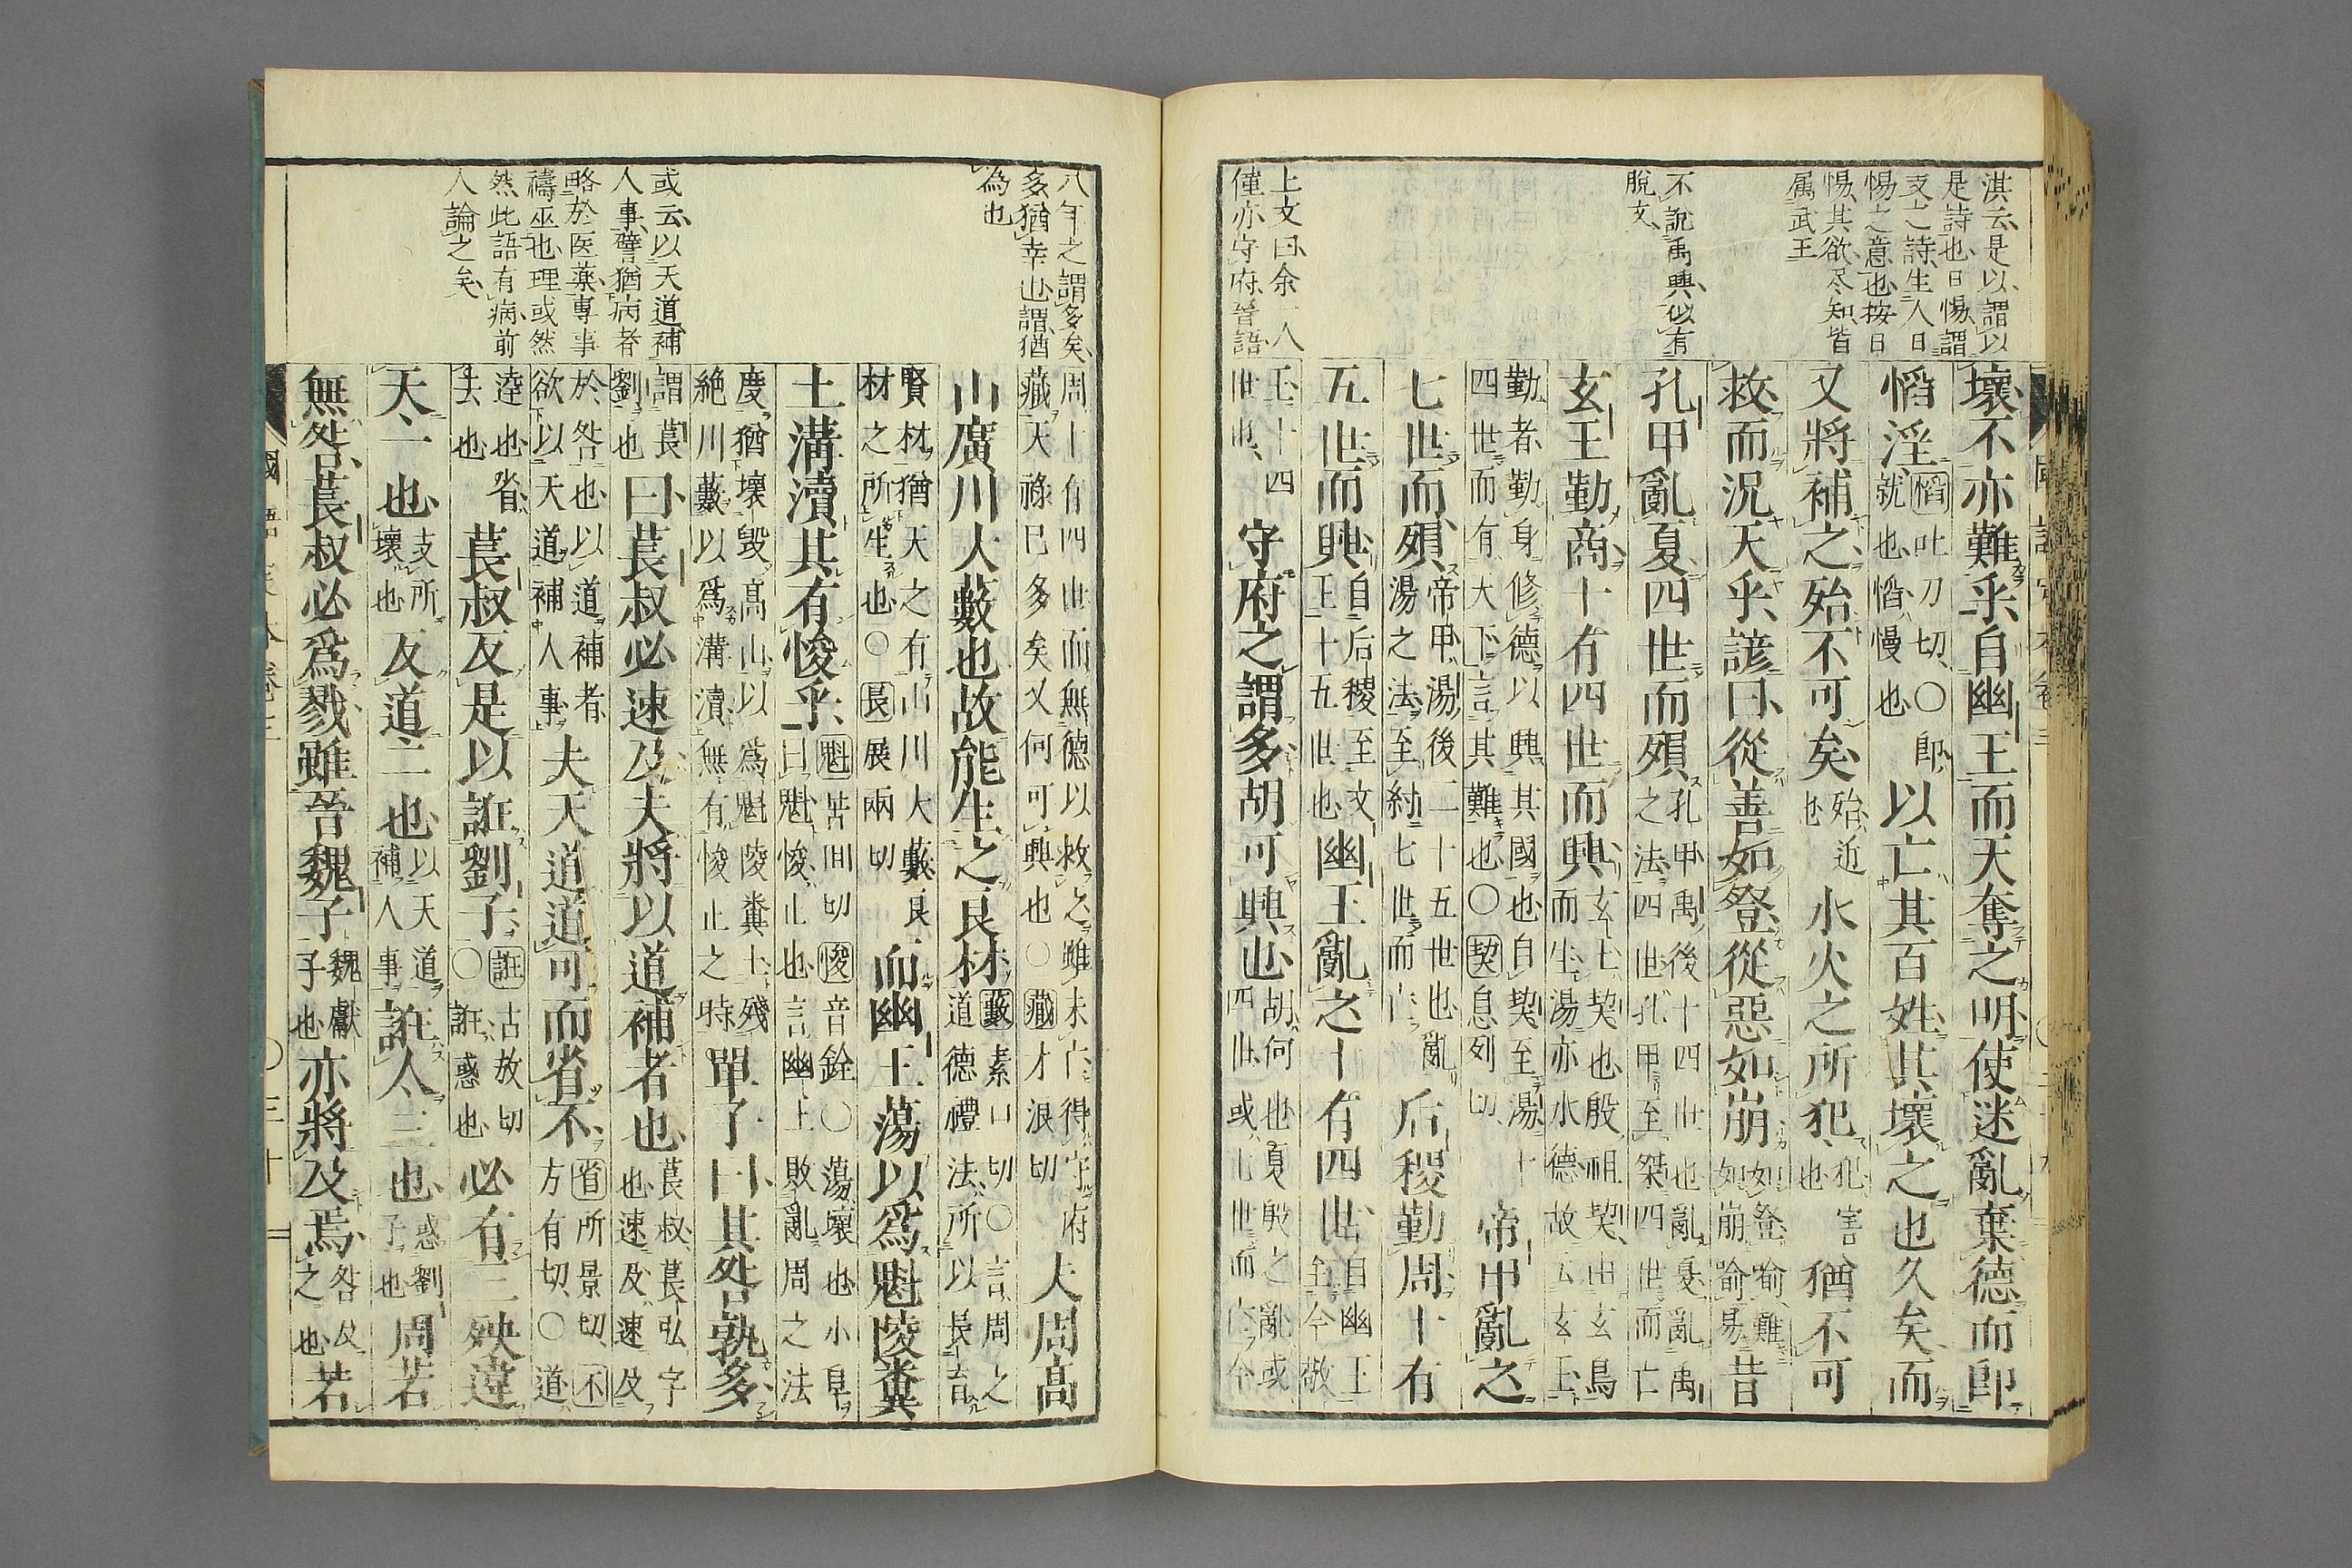 淇云是以謂以
是詩也日惕謂
支之詩生人日
惕之意也按日
惕其欲尽知皆
属武王
不說禹興似有
脫文
上文曰余一人
僅亦守府晉語
壞不亦難乎自幽王而天奪之明使迷亂棄德而卽
慆淫慆吐刀切〇卽就也慆慢也以亡其百姓其壞之也久矣而
又將補之殆不可矣殆近也水火之所犯犯害也猶不可
救而況天乎諺曰從善如登從惡如崩如登喻難如崩喻易昔
孔甲亂夏四世而殞孔甲禹後十四世也亂夏亂禹之法四世孔甲至桀四世而亡
玄王勤商十有四世而興玄王契也殷祖契由玄鳥而生湯亦水德故云玄王
勤者勤身修德以興其國也自契至湯十四世而有天下言其難也〇契息列切帝甲亂之
七世而殞帝甲湯後二十五世也亂湯之法至紂七世而亡后稷勤周十有
五世而興自后稷至文王十五世也幽王亂之十有四世自幽王至今敬
王十四世也守府之謂多胡可興也胡何也夏殷之亂或四世或七世而亡今
八年之謂多矣
多猶幸也謂猶
為也
或云以天道補
人事譬猶病者
略於医薬専事
禱巫也理或然
然此語有病前
人論之矣
周十有四世而無德以救之雖未亡得守府藏天祿已多矣又何可興也〇藏才浪切夫周高
山廣川大藪也故能生之良材藪素口切〇言周之道德禮法所以長育
賢材猶天之有山川大藪良材之所生也〇長展兩切而幽王蕩以爲魁陵糞
土溝瀆其有悛乎魁苦回切悛音銓〇蕩壞也小阜曰魁悛止也言幽王敗亂周之法
度猶壞毀高山以爲魁陵糞土殘絕川藪以爲溝瀆無有悛止之時單子曰其咎孰多
謂萇劉也曰萇叔必速及夫將以道補者也萇叔萇弘字也速及速及
於咎也以道補者欲以天道補人事夫天道道可而省不省所景切不方有切〇道
達也省去也萇叔反是以誑劉子誑古放切〇誑惑也必有三殃違
天一也支所壞也反道二也以天道補人事誑人三也惑劉子也周若
無咎萇叔必爲戮雖晉魏子魏獻子也亦將及焉咎及之也若